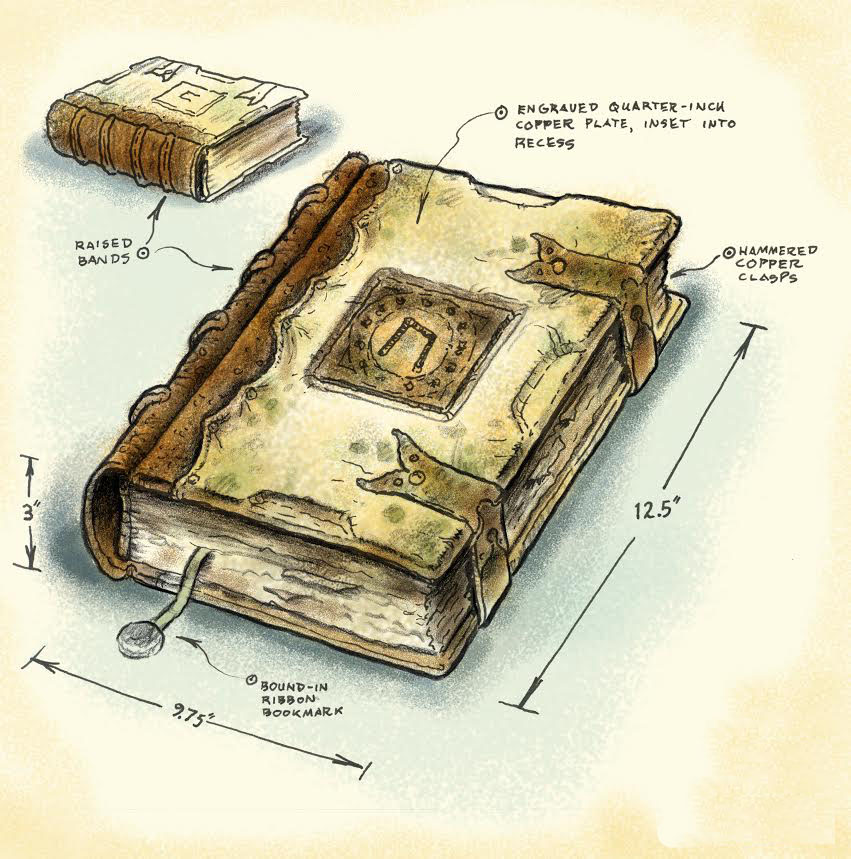 ENGRAVED QUARTER-INCH
COPPER PLATE, INSET INTO
RECESS
RAISED
BANDS
HAMMERED
COPPER
CLASPS
3"
12.5"
BOUND-IN
RIBBON
BOOKMARK
9.75"